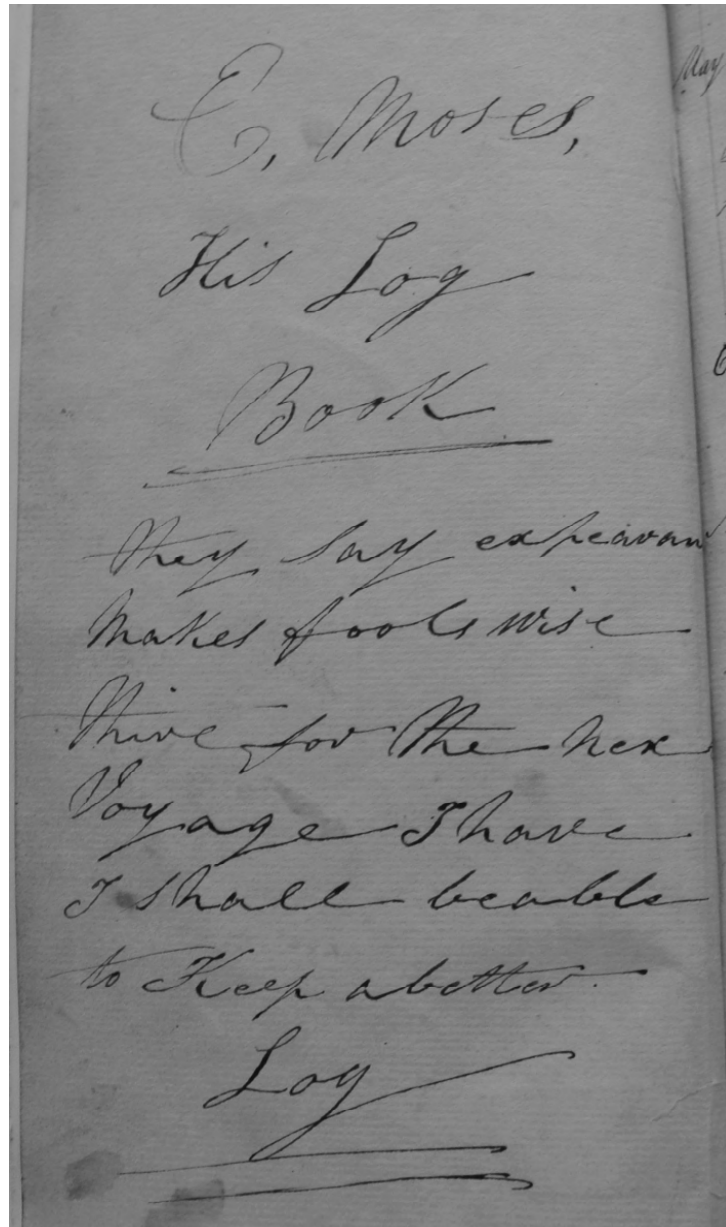 E, Moses,
His Log
Book
they say expearan
Makes fools wise
for the nex
Voyage I have
I shall beable
to Keep a better
Log
May